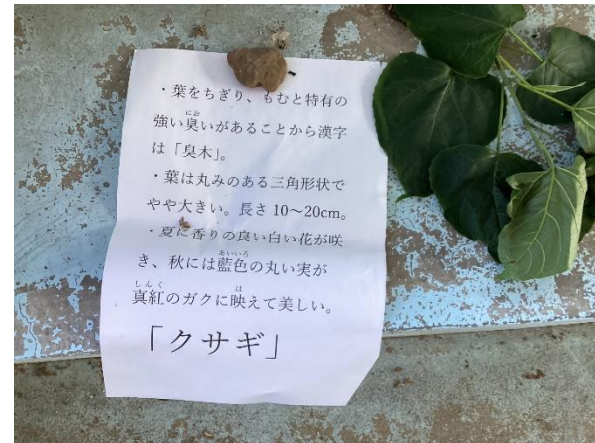 ・葉をちぎり、もむと特有の
強い臭いがあることから漢字
は「臭木」。
・葉は丸みのある三角形状で
やや大きい。長さ 10～20cm。
・夏に香りの良い白い花が咲
き、秋には藍色の丸い実が
真紅のガクに映えて美しい。
「クサギ」